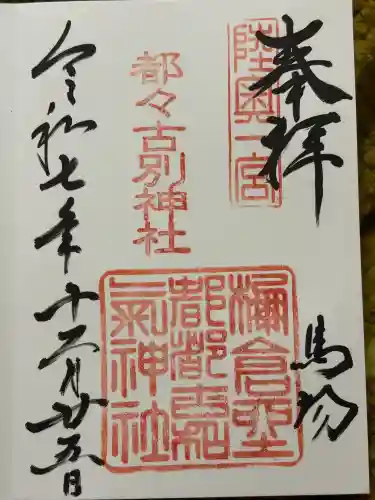 奉拝
陸奥一宮
馬場
都々古別神社
棚倉聖
都都古
氣神社
令和七年十二月廿五日